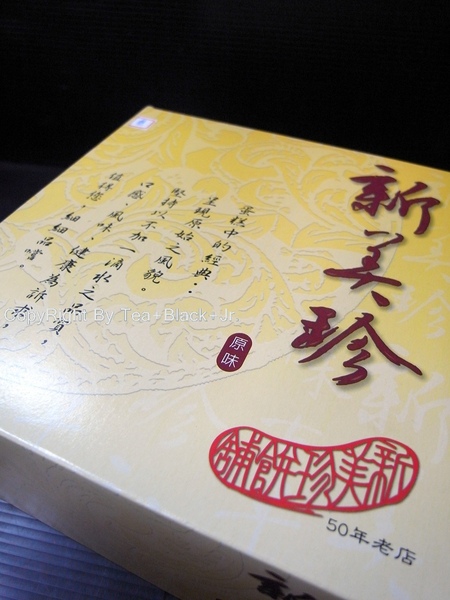 新美珍
蛋糕中的經典：
呈現原始之風貌。
堅持以不加一滴水之品質，
口感、風味、健康為訴求，
值得您，細細品嚐。
原味
新美珍餅舖
50年老店
CopyRight By Tea+Black+Jr.